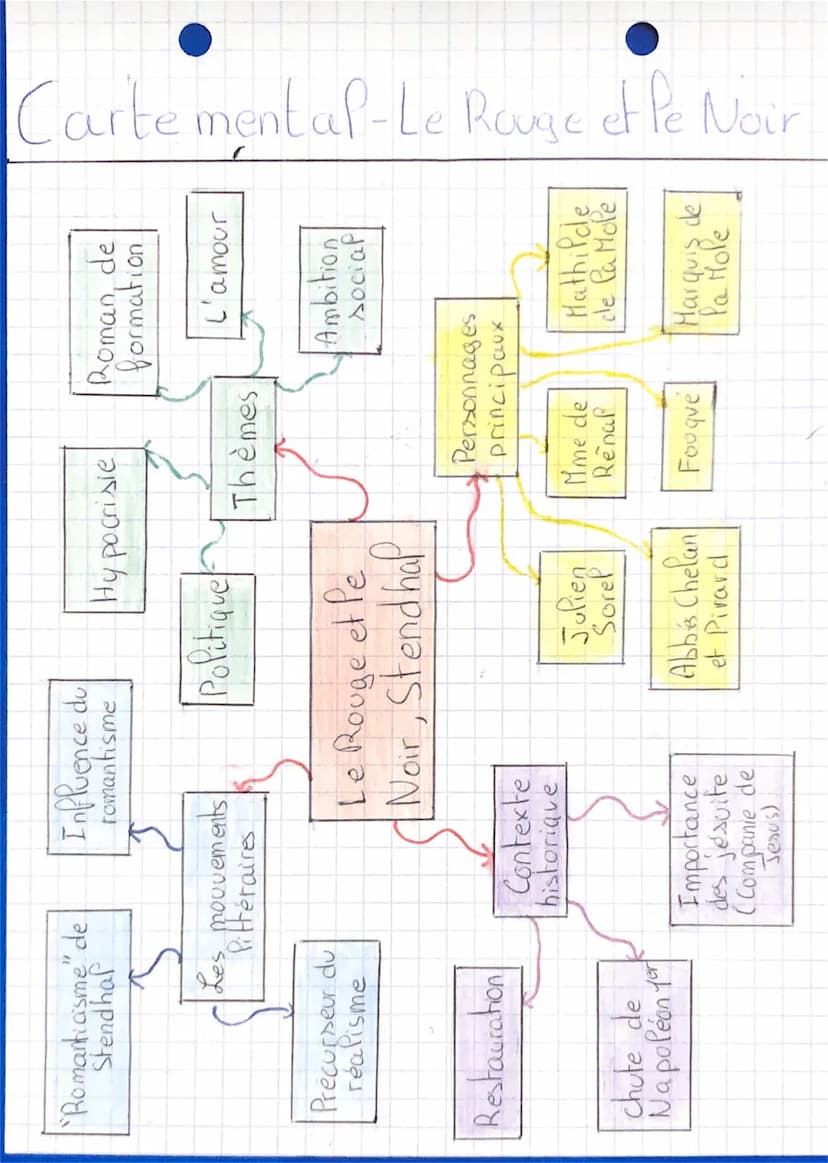 Carte mental - Le Rouge et le Noir
Le Rouge et le
Noir, Stendhal
Thèmes
Politique
Hypocrisie
Roman de
formation
L'amour
Ambition
social
Personnages
principaux
Julien
Sorel
Abbés Chelan
et Pirard
Mme de
Rênal
Fouqué
Mathilde
de la Mole
Marquis de
la Mole
Les mouvements
littéraires
"Romanticisme" de
Stendhal
Influence du
romantisme
Précurseur du
réalisme
Contexte
historique
Restauration
Chute de
Napoléon 1er
Importance
des jésuite
(Companie de
Jesus)